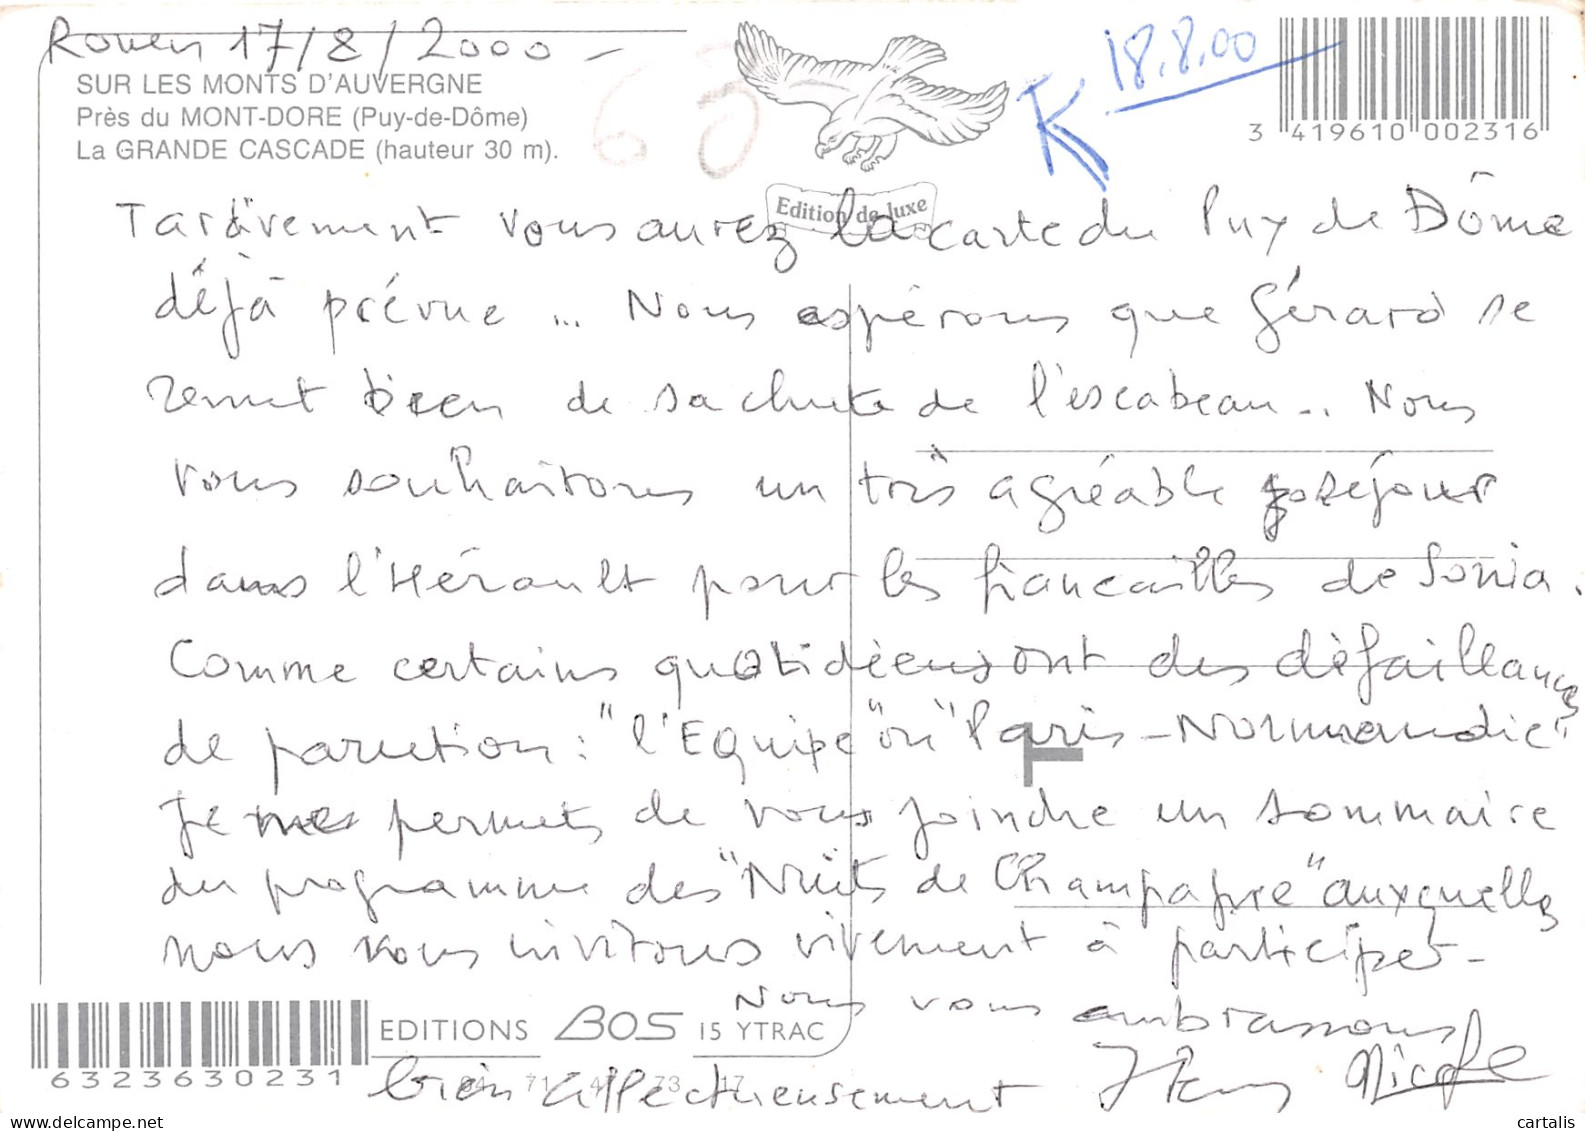 Rouen 17/8/2000 -
18.8.00
SUR LES MONTS D'AUVERGNE
Près du MONT-DORE (Puy-de-Dôme)
La GRANDE CASCADE (hauteur 30 m).
Edition de luxe
3 419610 002316
Tardivement vous aurez la carte du Puy de Dôme
déjà prévue ... Nous espérons que Gérard se
remet bien de sa chute de l'escabeau .. Nous
vous souhaitons un très agréable séjour
dans l'Hérault pour les fiancailles de Sonia.
Comme certains quotidiens ont des défaillances
de parution : "l'Equipe" ou "Paris-Normandie"
Je me permets de vous joindre un sommaire
du programme des "Nuits de Champagne" auxquelles
nous vous invitons vivement à participer -
Nous vous embrassons
EDITIONS BOS 15 YTRAC
6323630231
bien affectueusement
Nicole
cartalis
www.delcampe.net